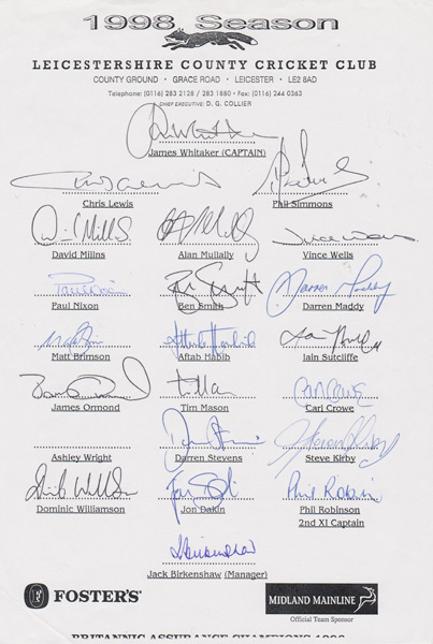 1998 Season
LEICESTERSHIRE COUNTY CRICKET CLUB
COUNTY GROUND · GRACE ROAD · LEICESTER · LE2 8AD
Telephone: (0116) 283 2128 / 283 1880 · Fax: (0116) 244 0363
CHIEF EXECUTIVE: D. G. COLLIER
James Whitaker (CAPTAIN)
Chris Lewis
Phil Simmons
David Millns
Alan Mullally
Vince Wells
Paul Nixon
Ben Smith
Darren Maddy
Matt Brimson
Aftab Habib
Iain Sutcliffe
James Ormond
Tim Mason
Carl Crowe
Ashley Wright
Darren Stevens
Steve Kirby
Dominic Williamson
Jon Dakin
Phil Robinson
2nd XI Captain
Jack Birkenshaw (Manager)
FOSTER'S
MIDLAND MAINLINE
Official Team Sponsor
BRITANNIC ASSURANCE CHAMPIONS